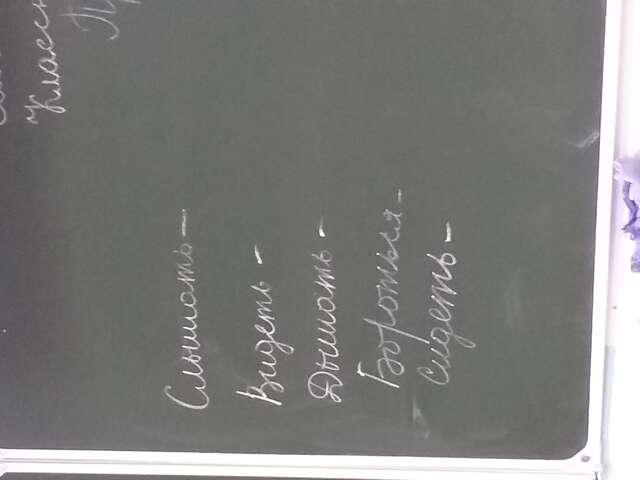 классн
Пр
Слышать –
Видеть –
Дышать –
Бороться –
Сидеть –